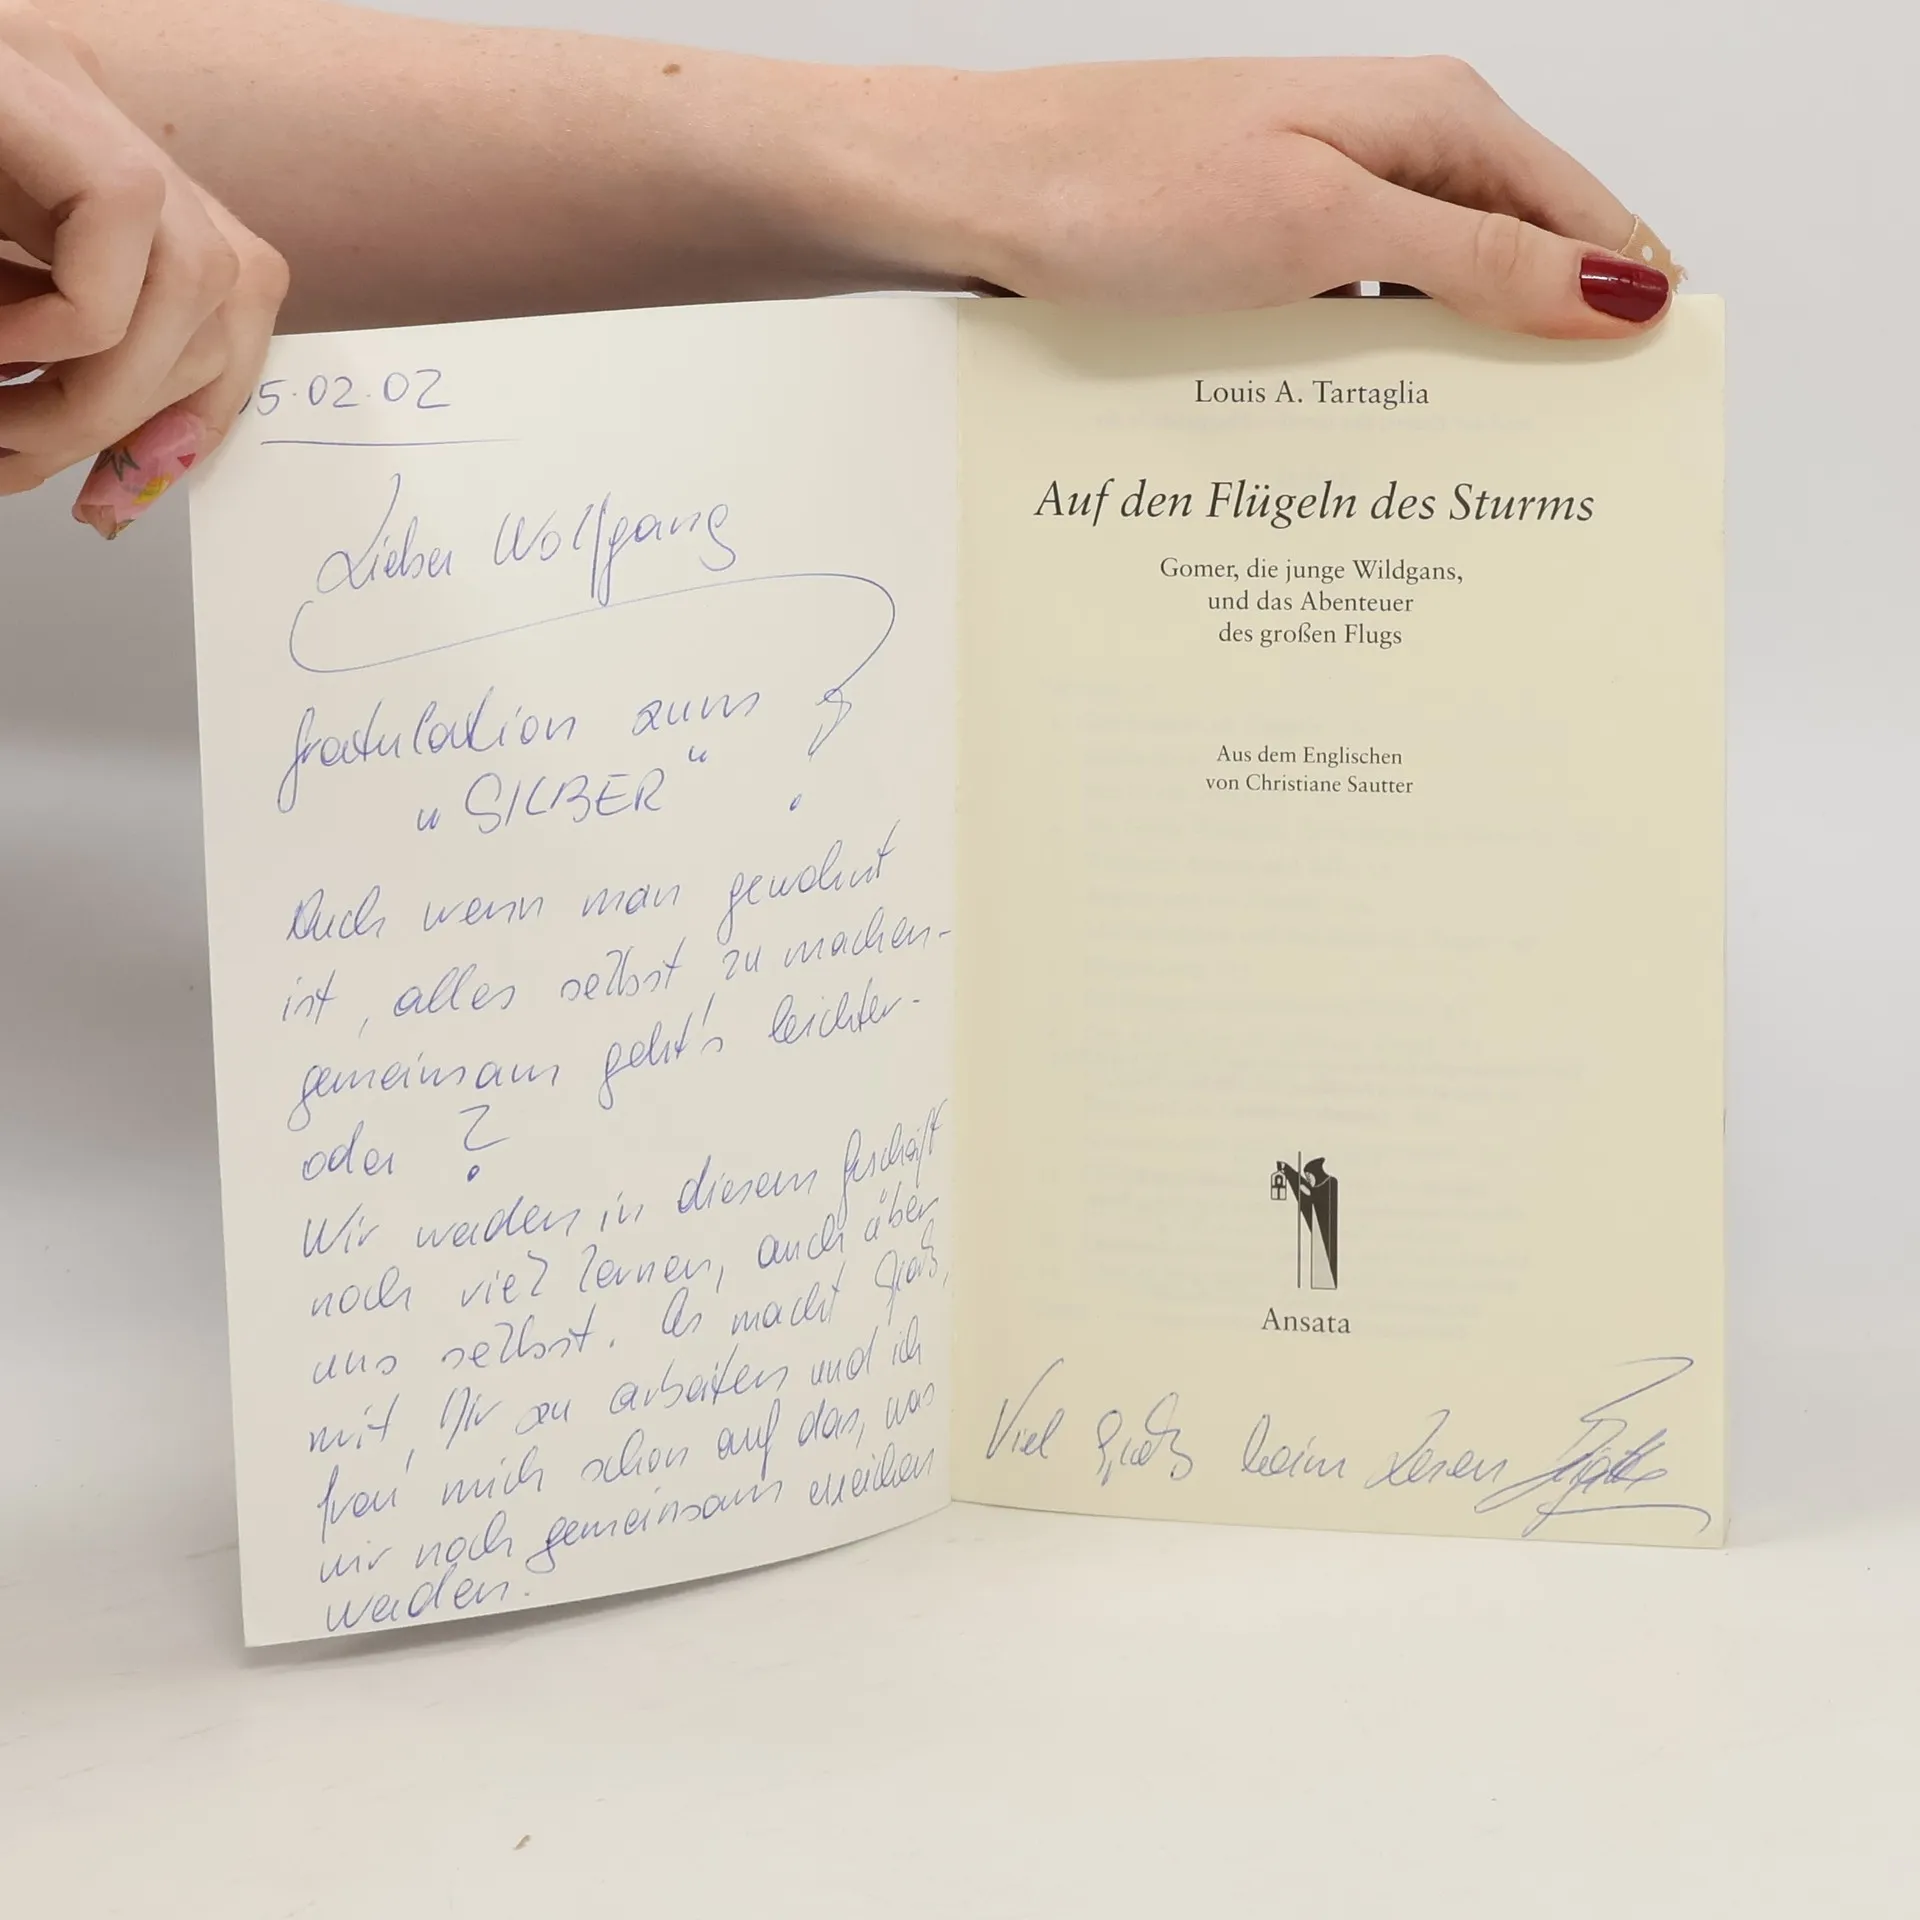 5.02.02
Lieber Wolfgang
Gratulation zum
"SILBER"!
Auch wenn man gewohnt
ist, alles selbst zu machen -
gemeinsam geht's leichter -
oder?
Wir werden in diesem Geschäft
noch viel lernen, auch über
uns selbst. Es macht Spaß,
mit Dir zu arbeiten und ich
freu' mich schon auf das, was
wir noch gemeinsam erreichen
werden.
Louis A. Tartaglia
Auf den Flügeln des Sturms
Gomer, die junge Wildgans,
und das Abenteuer
des großen Flugs
Aus dem Englischen
von Christiane Sautter
Ansata
Viel Spaß beim Lesen